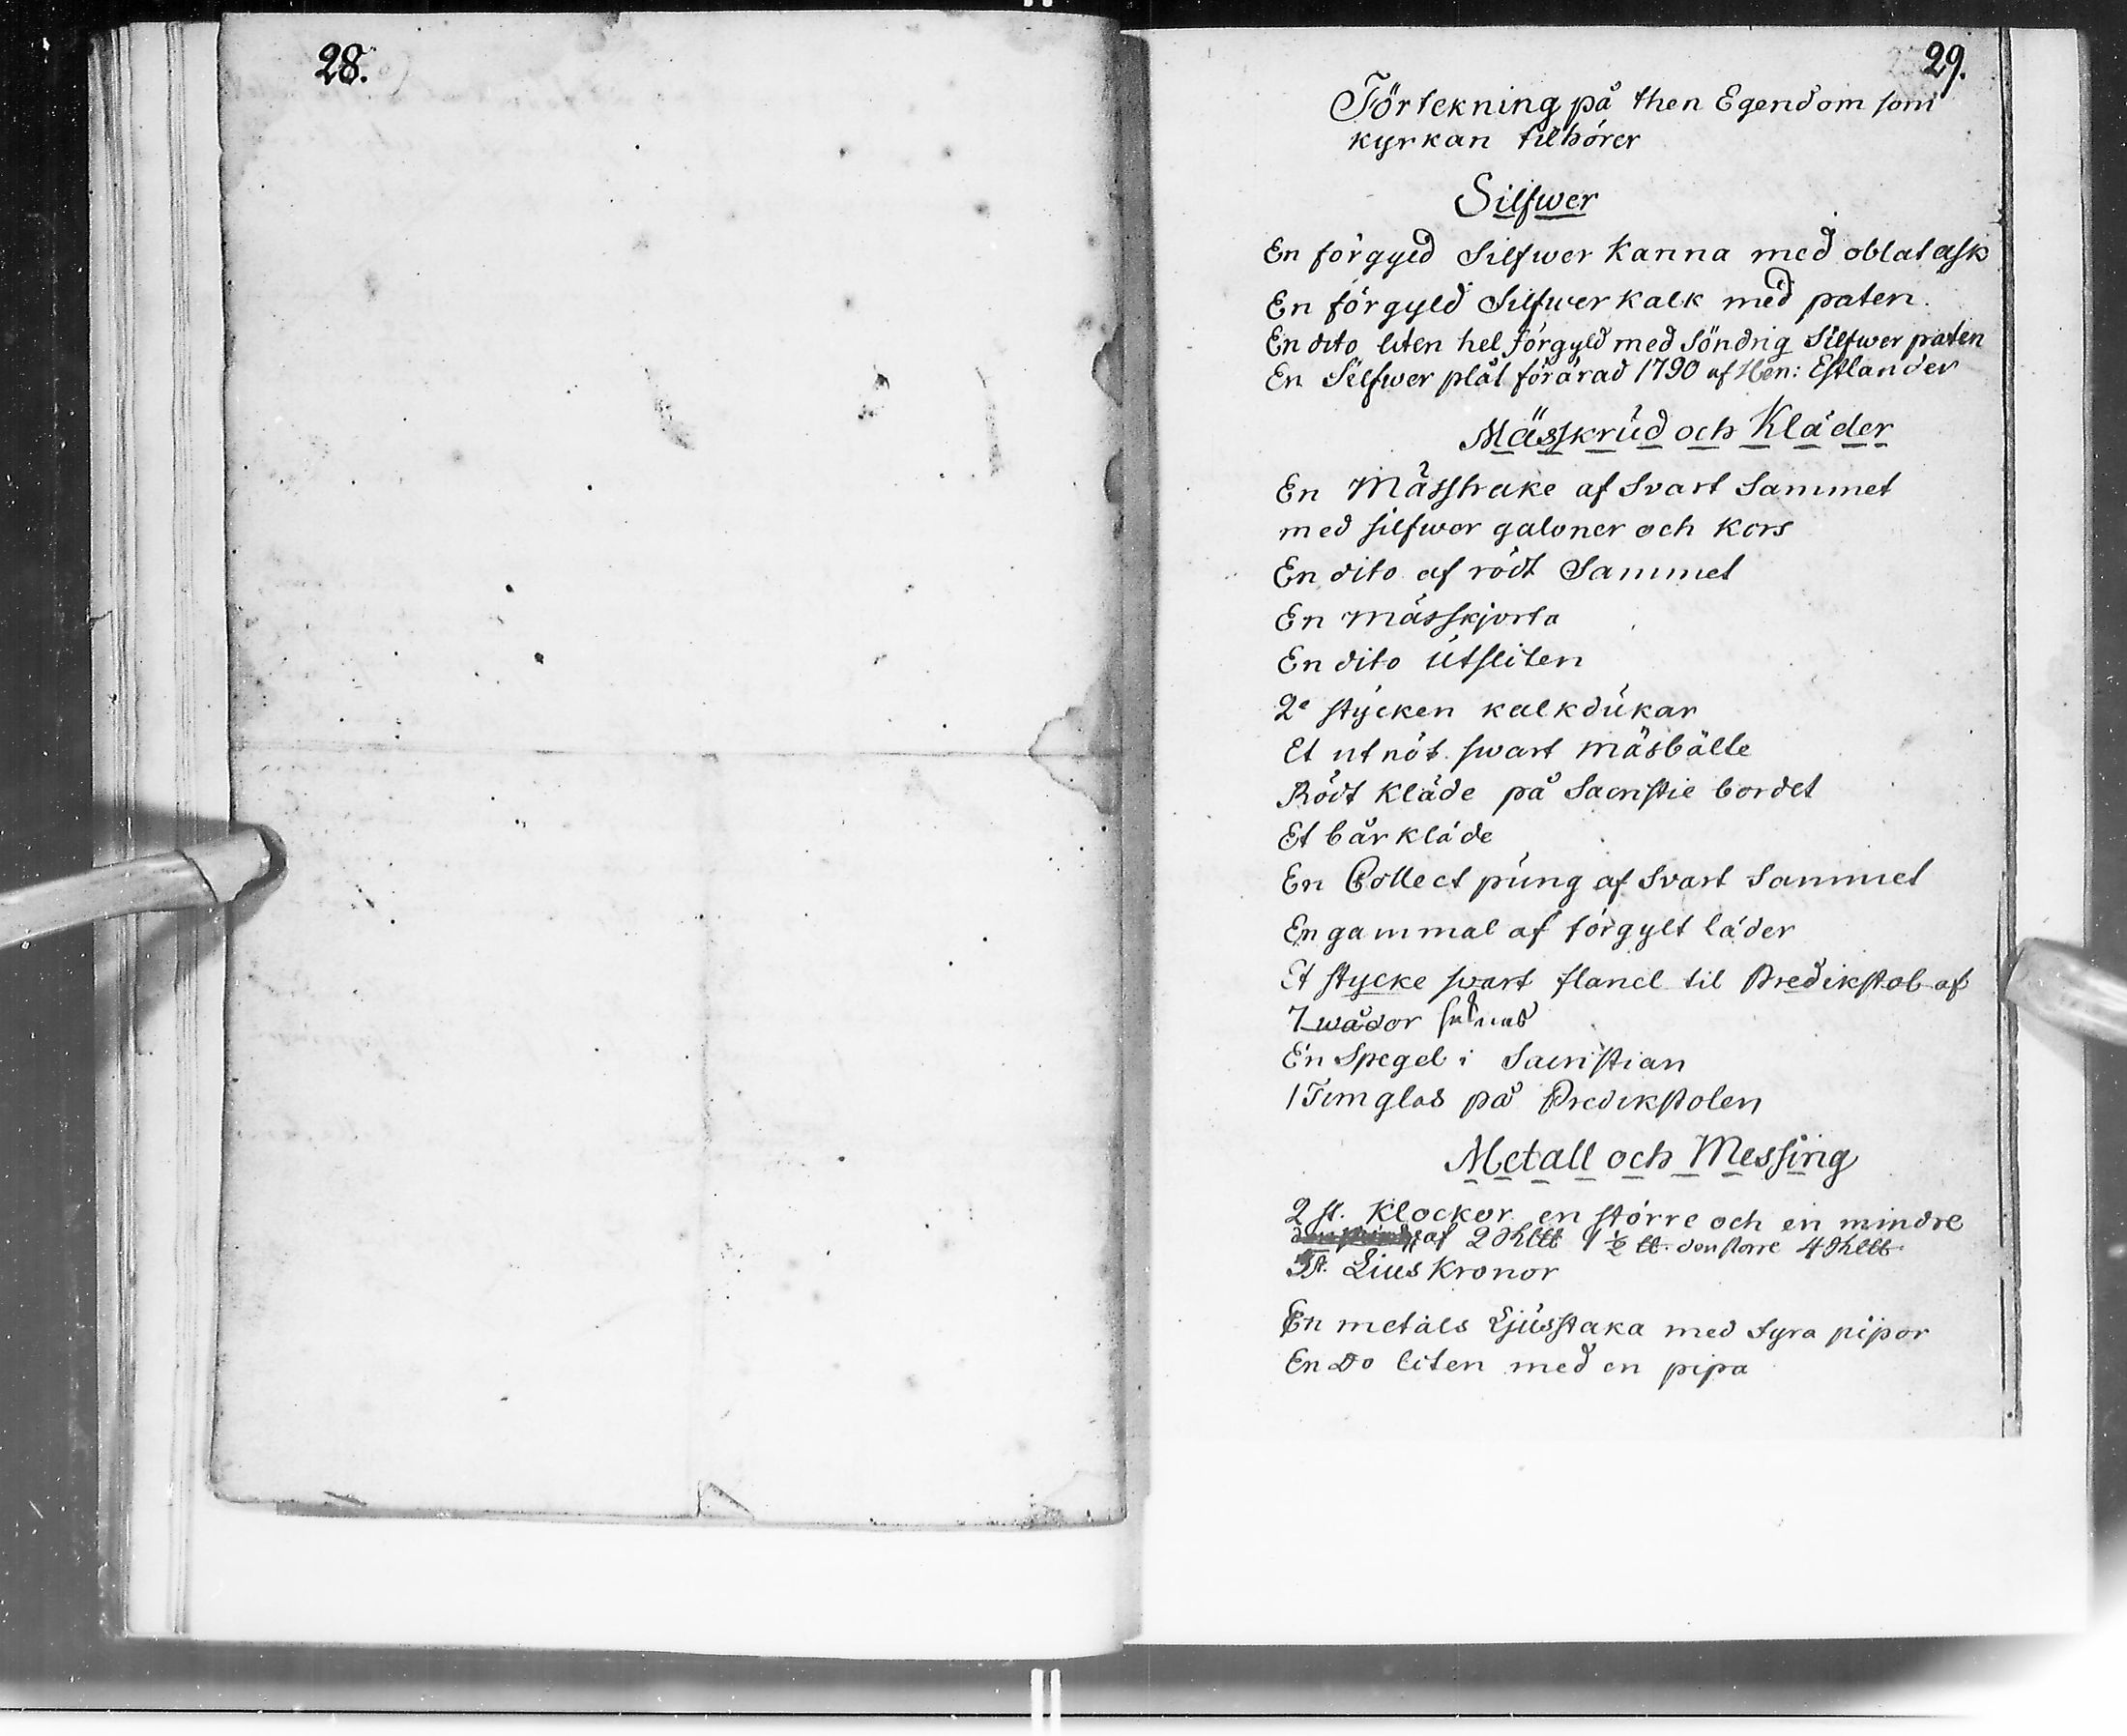 28.
29.
Förtekning på then Egendom som
kyrkan tilhörer
Silfwer
En förgyld Silfwer Kanna med oblatask
En förgyld Silfwerkalk med paten.
En dito liten hel förgyld med Söndrig Silfwer paten
En Silfwer plåt förärad 1790 af Hen: Estlander
Mässkrud och Kläder
En Mässhake af Svart Sammet
med silfwer galoner och Kors
En dito af rödt Sammet
En Mässkjorta
En dito utsliten
2e stycken kalkdukar
Et utnöt swart mäsbälte
Rödt Kläde på Sacristie bordet
Et bårkläde
En Collect pung af Svart Sammet
En gammal af förgylt läder
Et stycke swart flanel til Predikstol af
7 wådor saknas
En Spegel i Sacristian
1 Timglas på Predikstolen
Metall och Messing
2 st. Klockor en större och en mindre
af 2 1 1/2 den större 4
st. Lius Kronor
En metals Ljusstaka med fyra pipor
En Do liten med en pipa